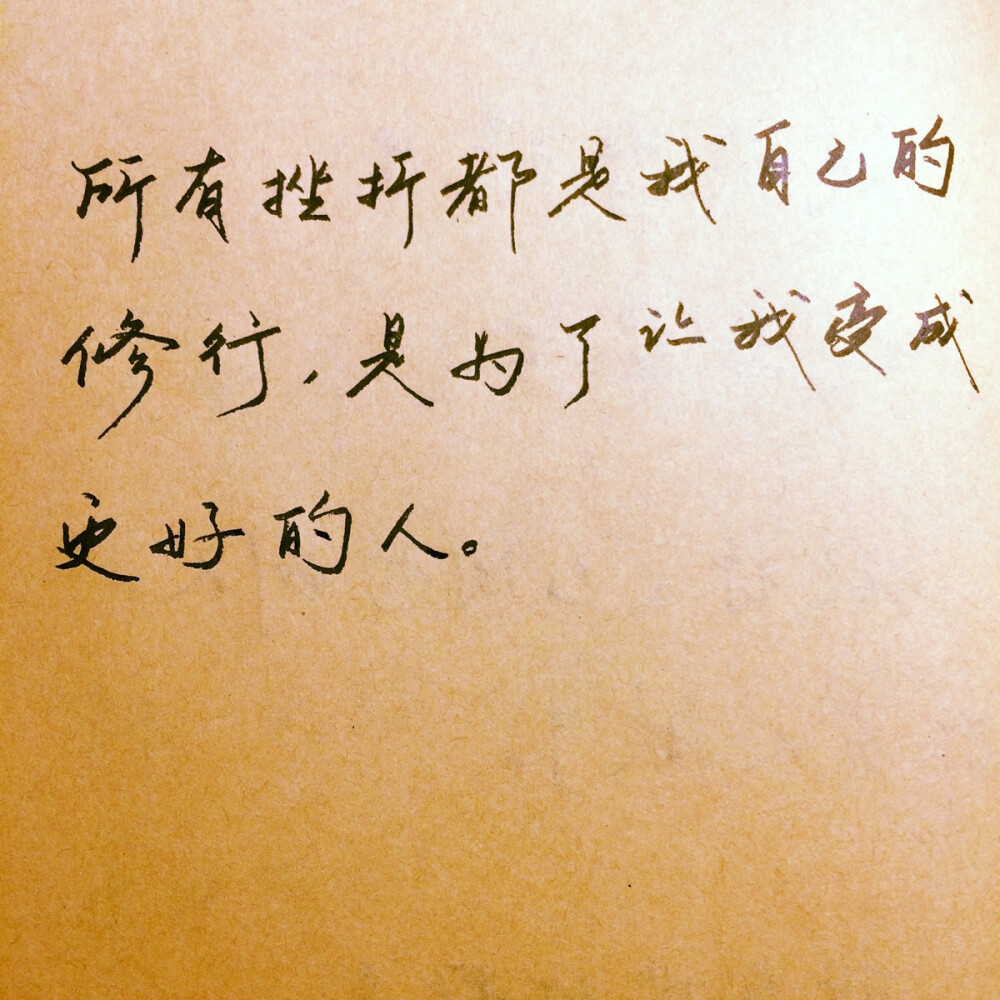 所有挫折都是我自己的
修行，是为了让我变成
更好的人。